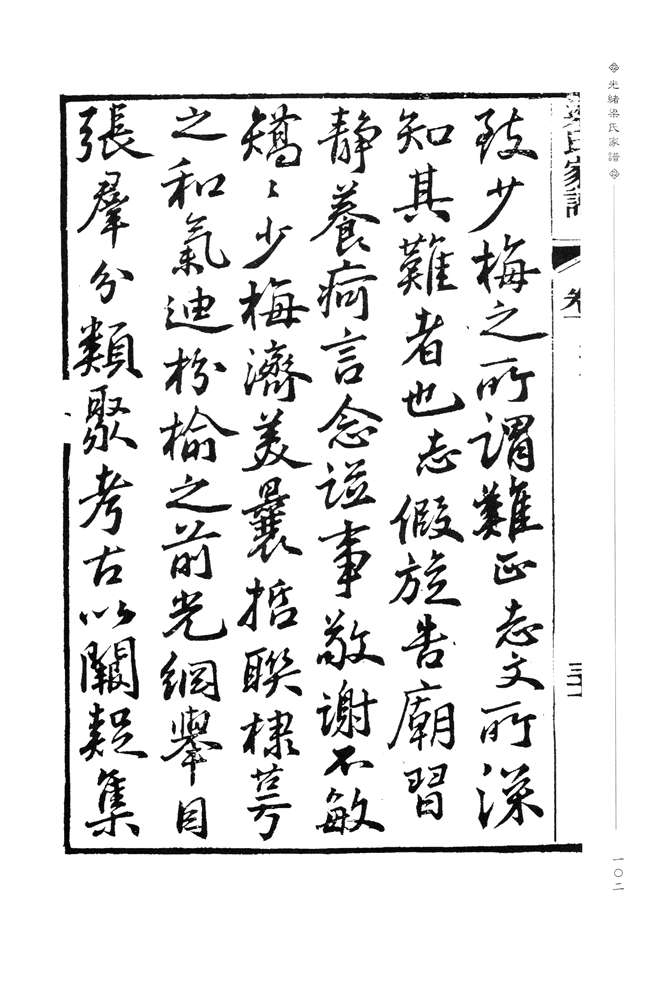 光緒梁氏家譜
梁氏家譜
卷一
一〇二
致少梅之所謂難正志文所深
知其難者也志假旋告廟習
靜養疴言念茲事敬謝不敏
矯矯少梅濟美曩哲聯棣萼
之和氣迪枌榆之前光綱舉目
張羣分類聚考古以闕疑集